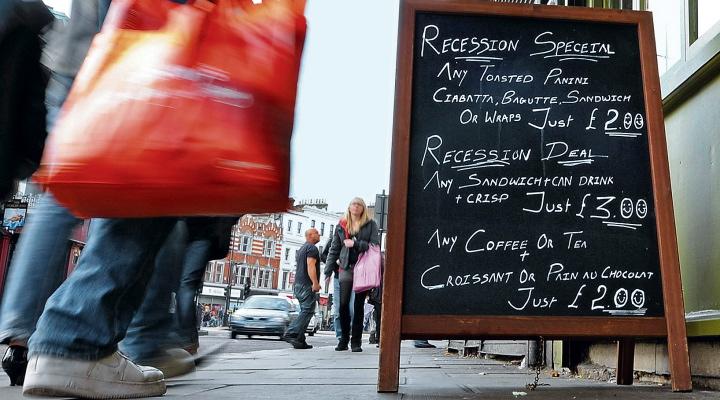 RECESSION SPECEIAL
ANY TOASTED PANINI
CIABATTA, BAGUTTE, SANDWICH
OR WRAPS JUST £2.00
RECESSION DEAL
ANY SANDWICH + CAN DRINK
+ CRISP JUST £3.00
ANY COFFEE OR TEA
+
CROISSANT OR PAIN AU CHOCOLAT
JUST £2.00